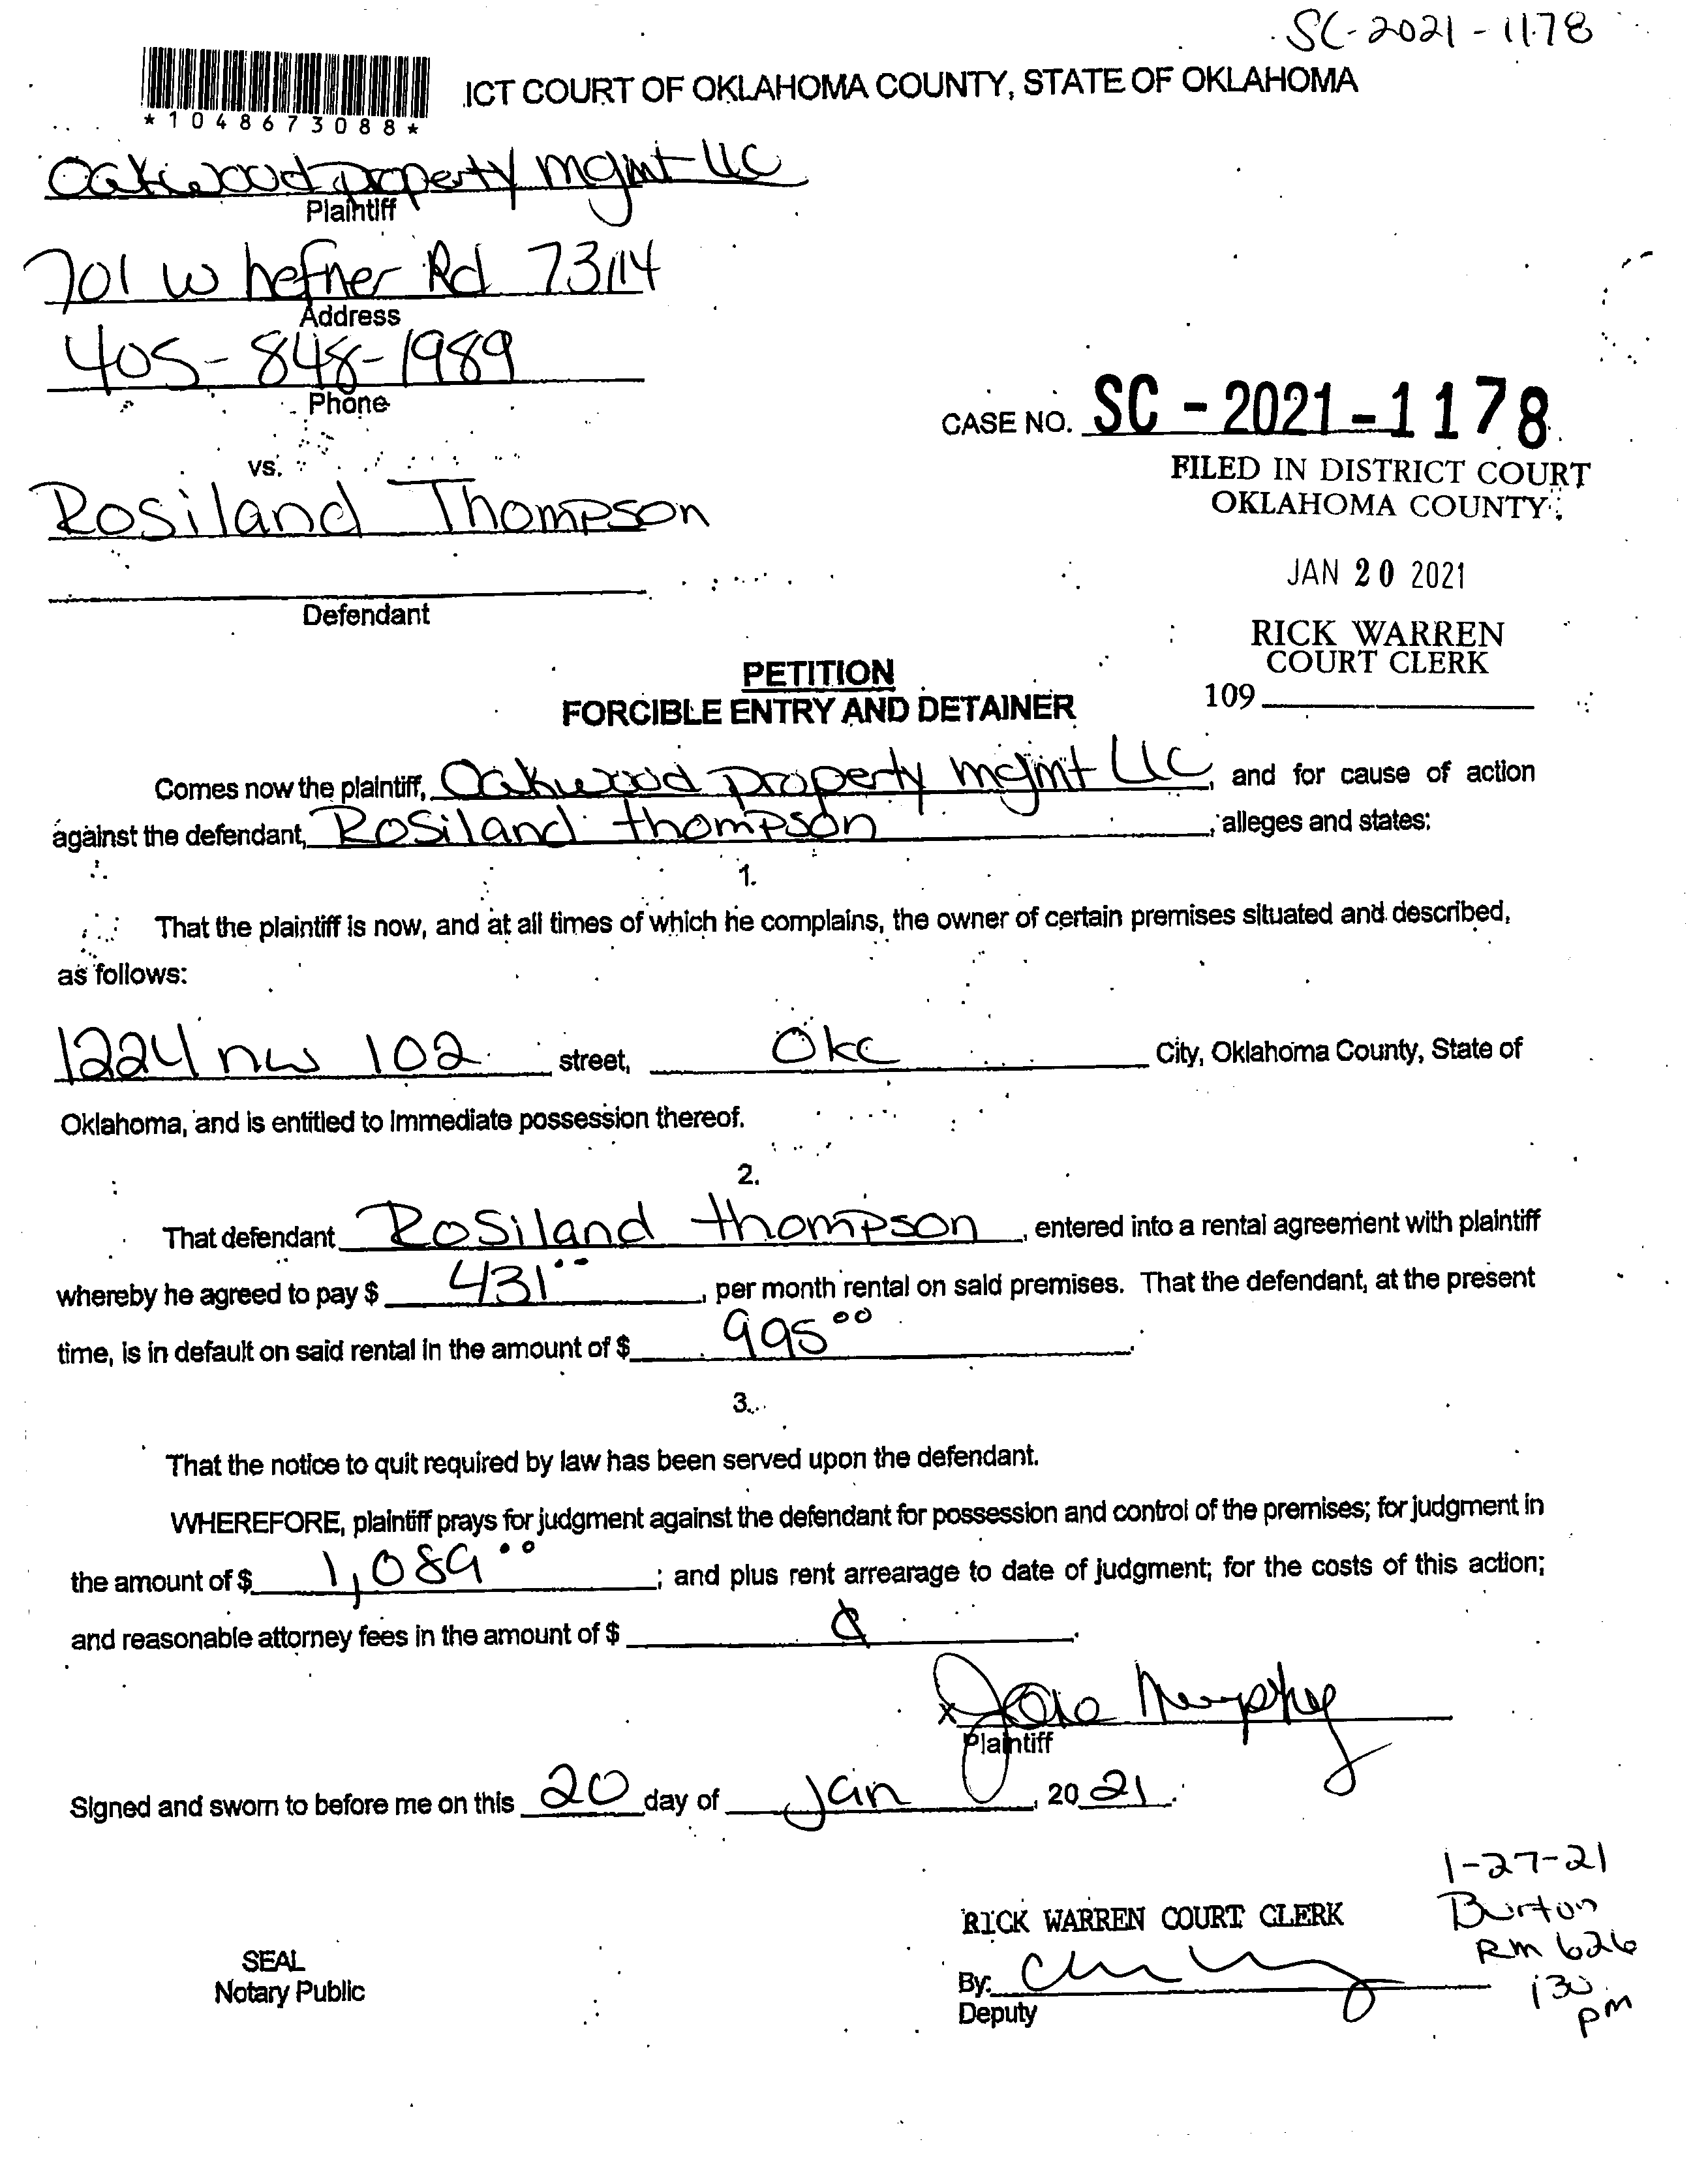 SC-2021-1178
ICT COURT OF OKLAHOMA COUNTY, STATE OF OKLAHOMA
*1048673088*
Oakwood property mgmt llc
Plaintiff
701 w hefner Rd 73114
Address
405-848-1989
Phone
CASE NO. SC-2021-1178
vs.
FILED IN DISTRICT COURT
OKLAHOMA COUNTY
Rosiland Thompson
JAN 20 2021
Defendant
RICK WARREN
COURT CLERK
109
PETITION
FORCIBLE ENTRY AND DETAINER
Comes now the plaintiff, Oakwood property mgmt LLC, and for cause of action
against the defendant, Rosiland thompson, alleges and states:
1.
That the plaintiff is now, and at all times of which he complains, the owner of certain premises situated and described,
as follows:
1224 nw 102 street, Okc City, Oklahoma County, State of
Oklahoma, and is entitled to immediate possession thereof.
2.
That defendant Rosiland thompson, entered into a rental agreement with plaintiff
whereby he agreed to pay $ 431, per month rental on said premises. That the defendant, at the present
time, is in default on said rental in the amount of $ 995 00.
3.
That the notice to quit required by law has been served upon the defendant.
WHEREFORE, plaintiff prays for judgment against the defendant for possession and control of the premises; for judgment in
the amount of $ 1,089 00; and plus rent arrearage to date of judgment; for the costs of this action;
and reasonable attorney fees in the amount of $
x Murphy
Plaintiff
Signed and sworn to before me on this 20 day of Jan, 2021.
1-27-21
Burton
Rm 626
130
pm
RICK WARREN COURT CLERK
By:
Deputy
SEAL
Notary Public